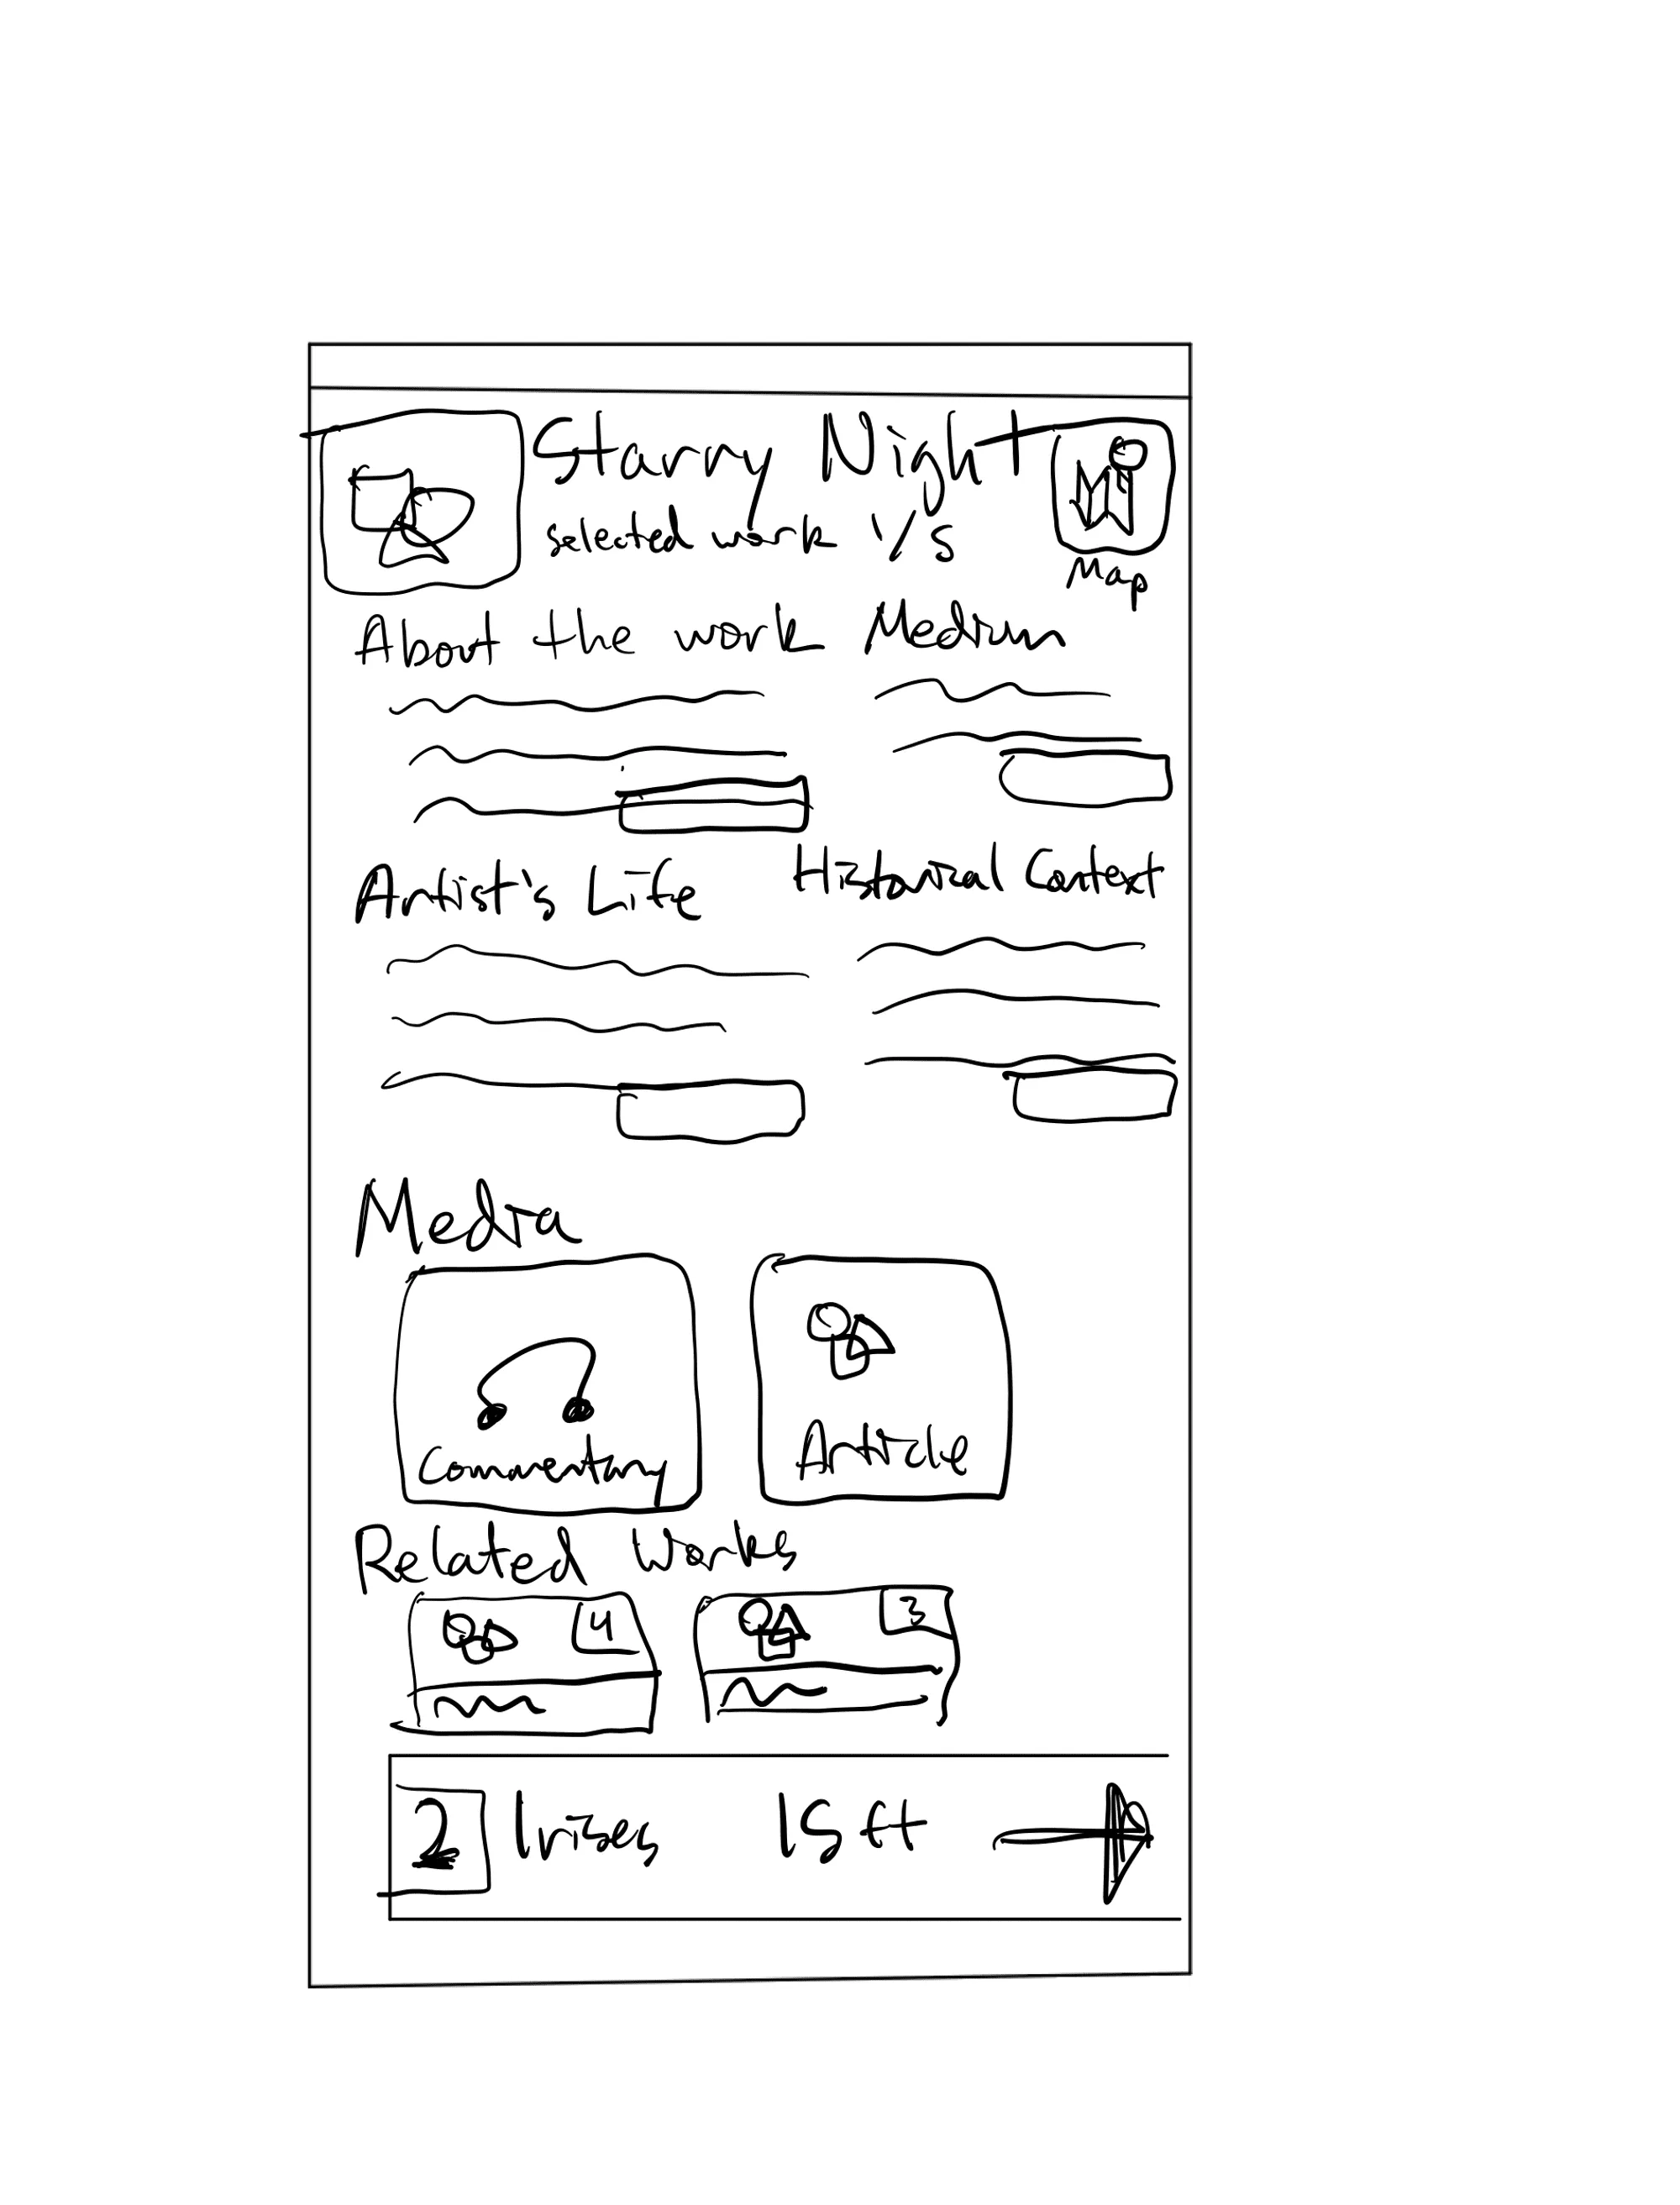 Starry Night
selected work 1/5
Map
About the work
Medium
Artist's Life
Historical Context
Media
Commentary
Article
Related Works
4
3
2
Irises
15 ft